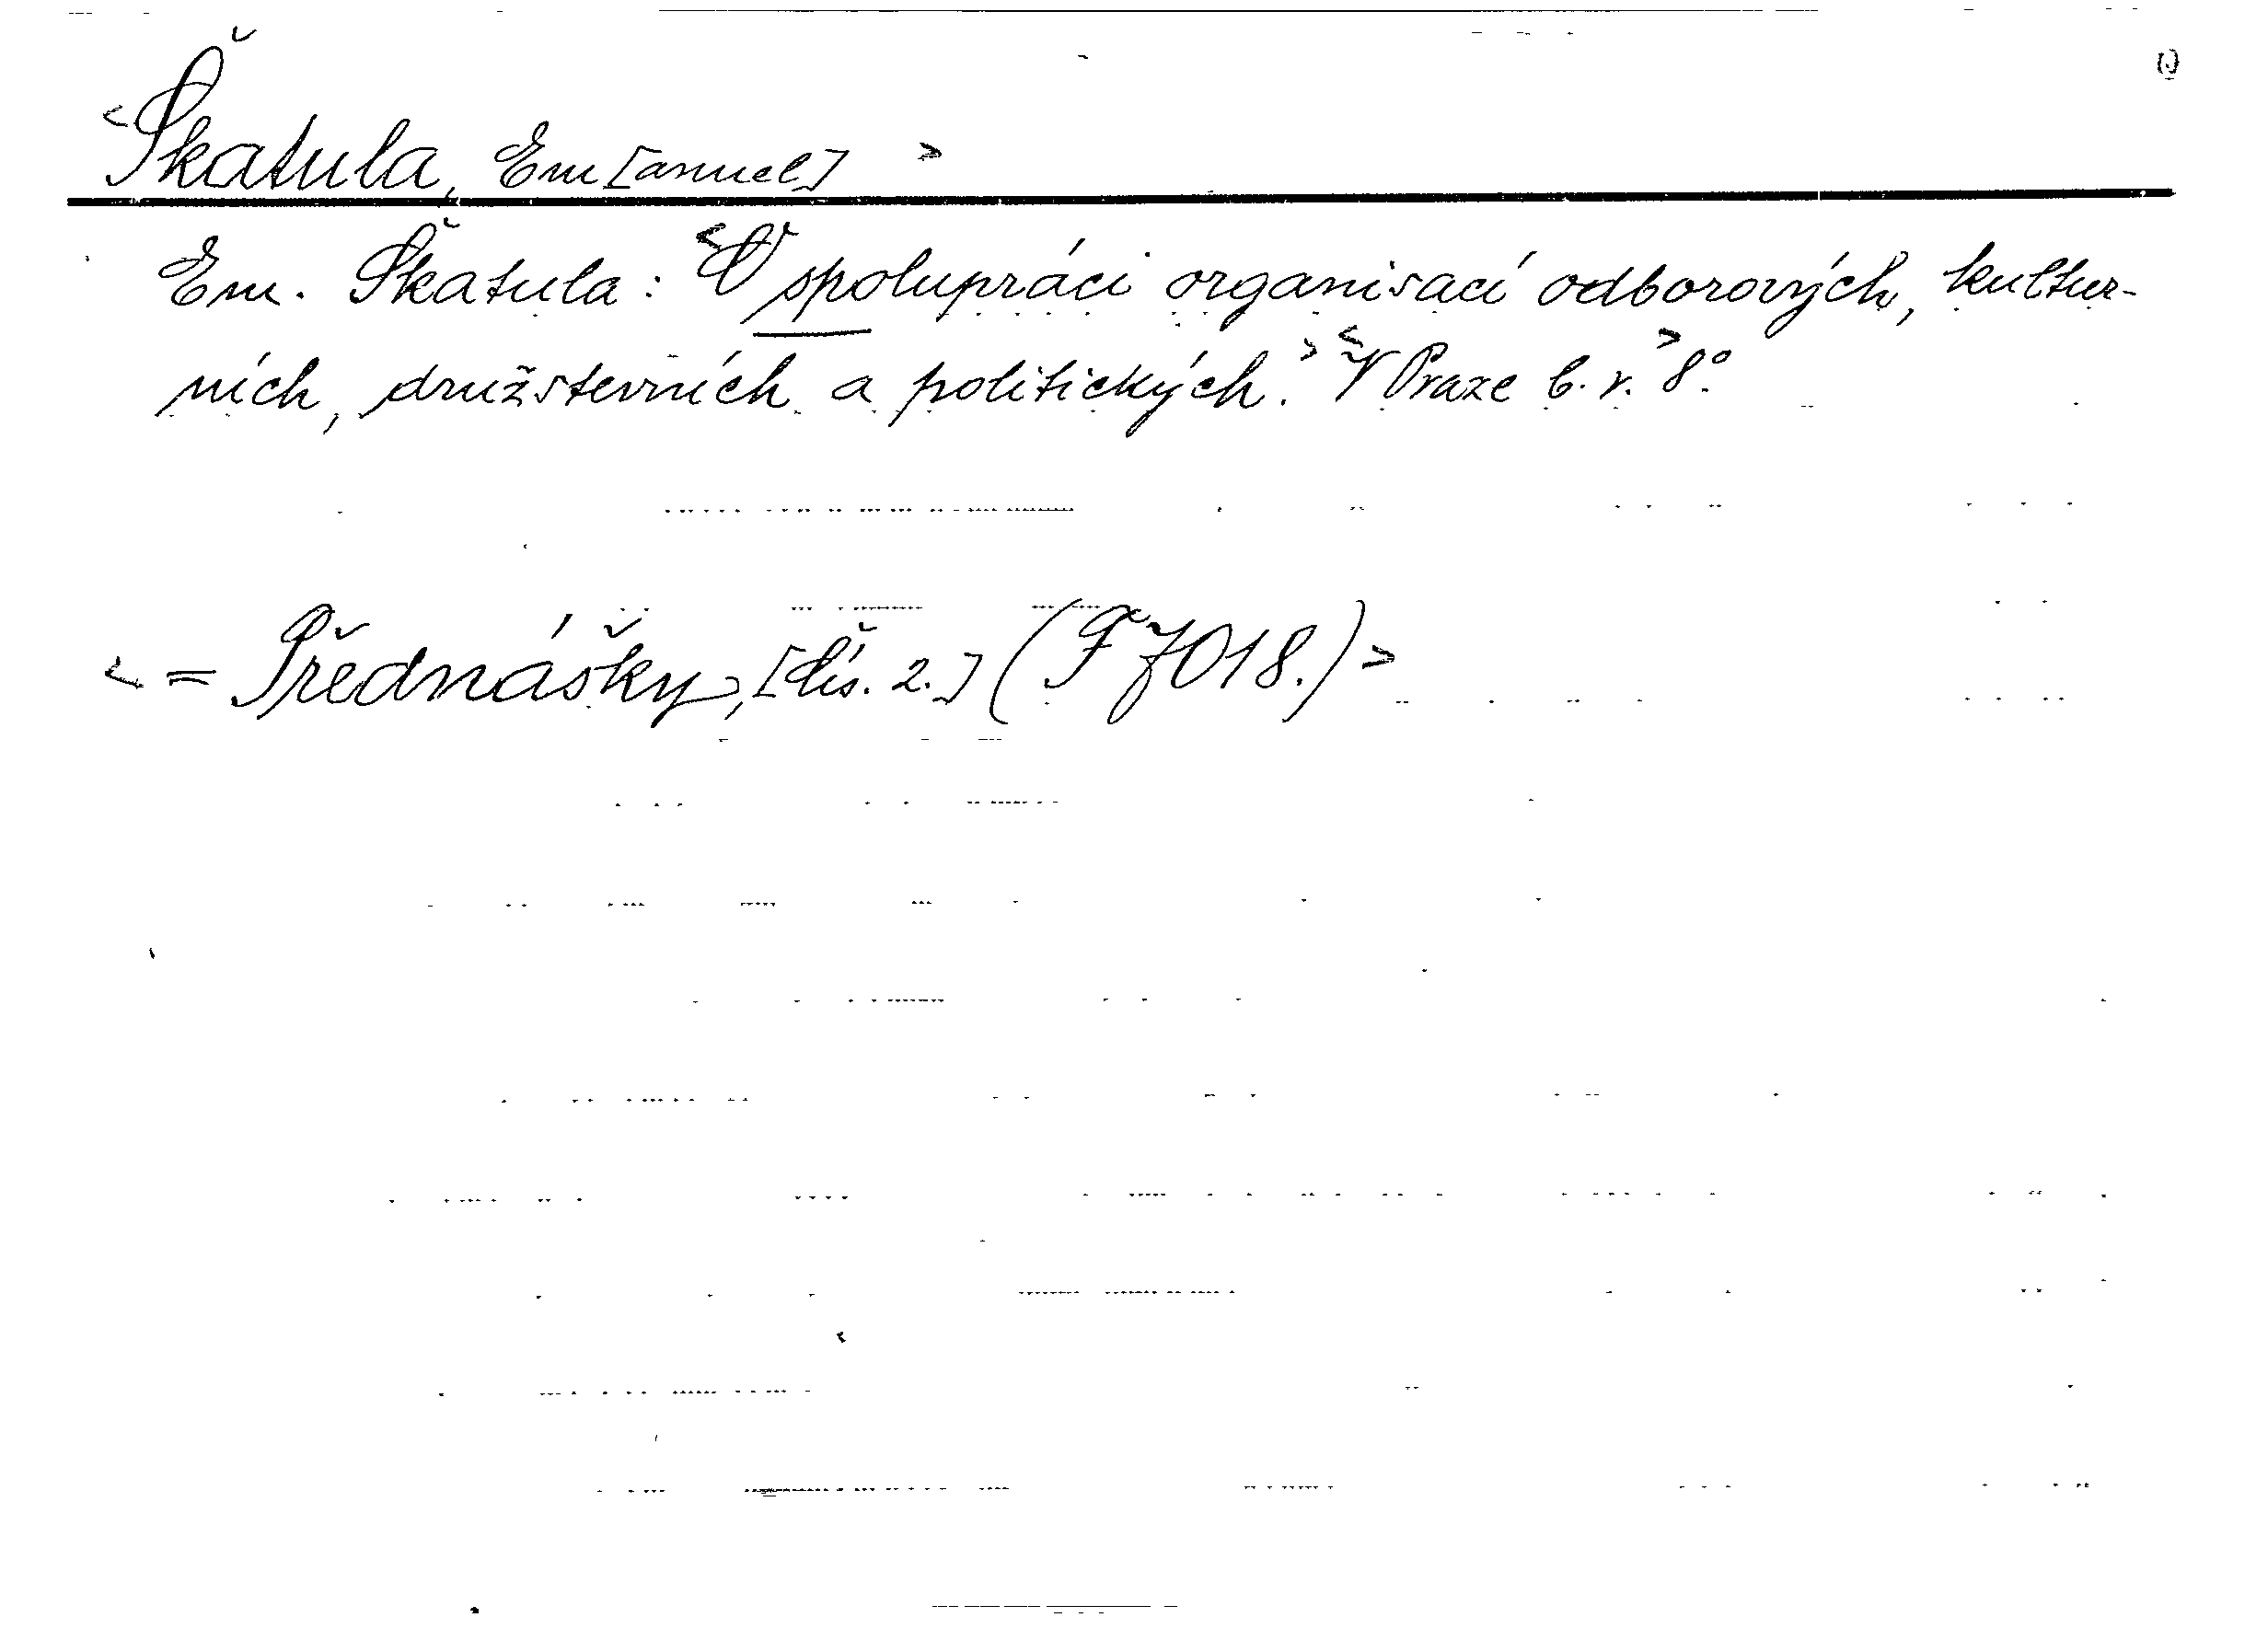 <Škatula, Em[anuel] >
Em. Škatula: <O spolupráci organisací odborových, kultur-
ních, družstevních a politických.> <V Praze b. r.> 8°.
< = Přednášky, [čís. 2.] (F 7018.) >